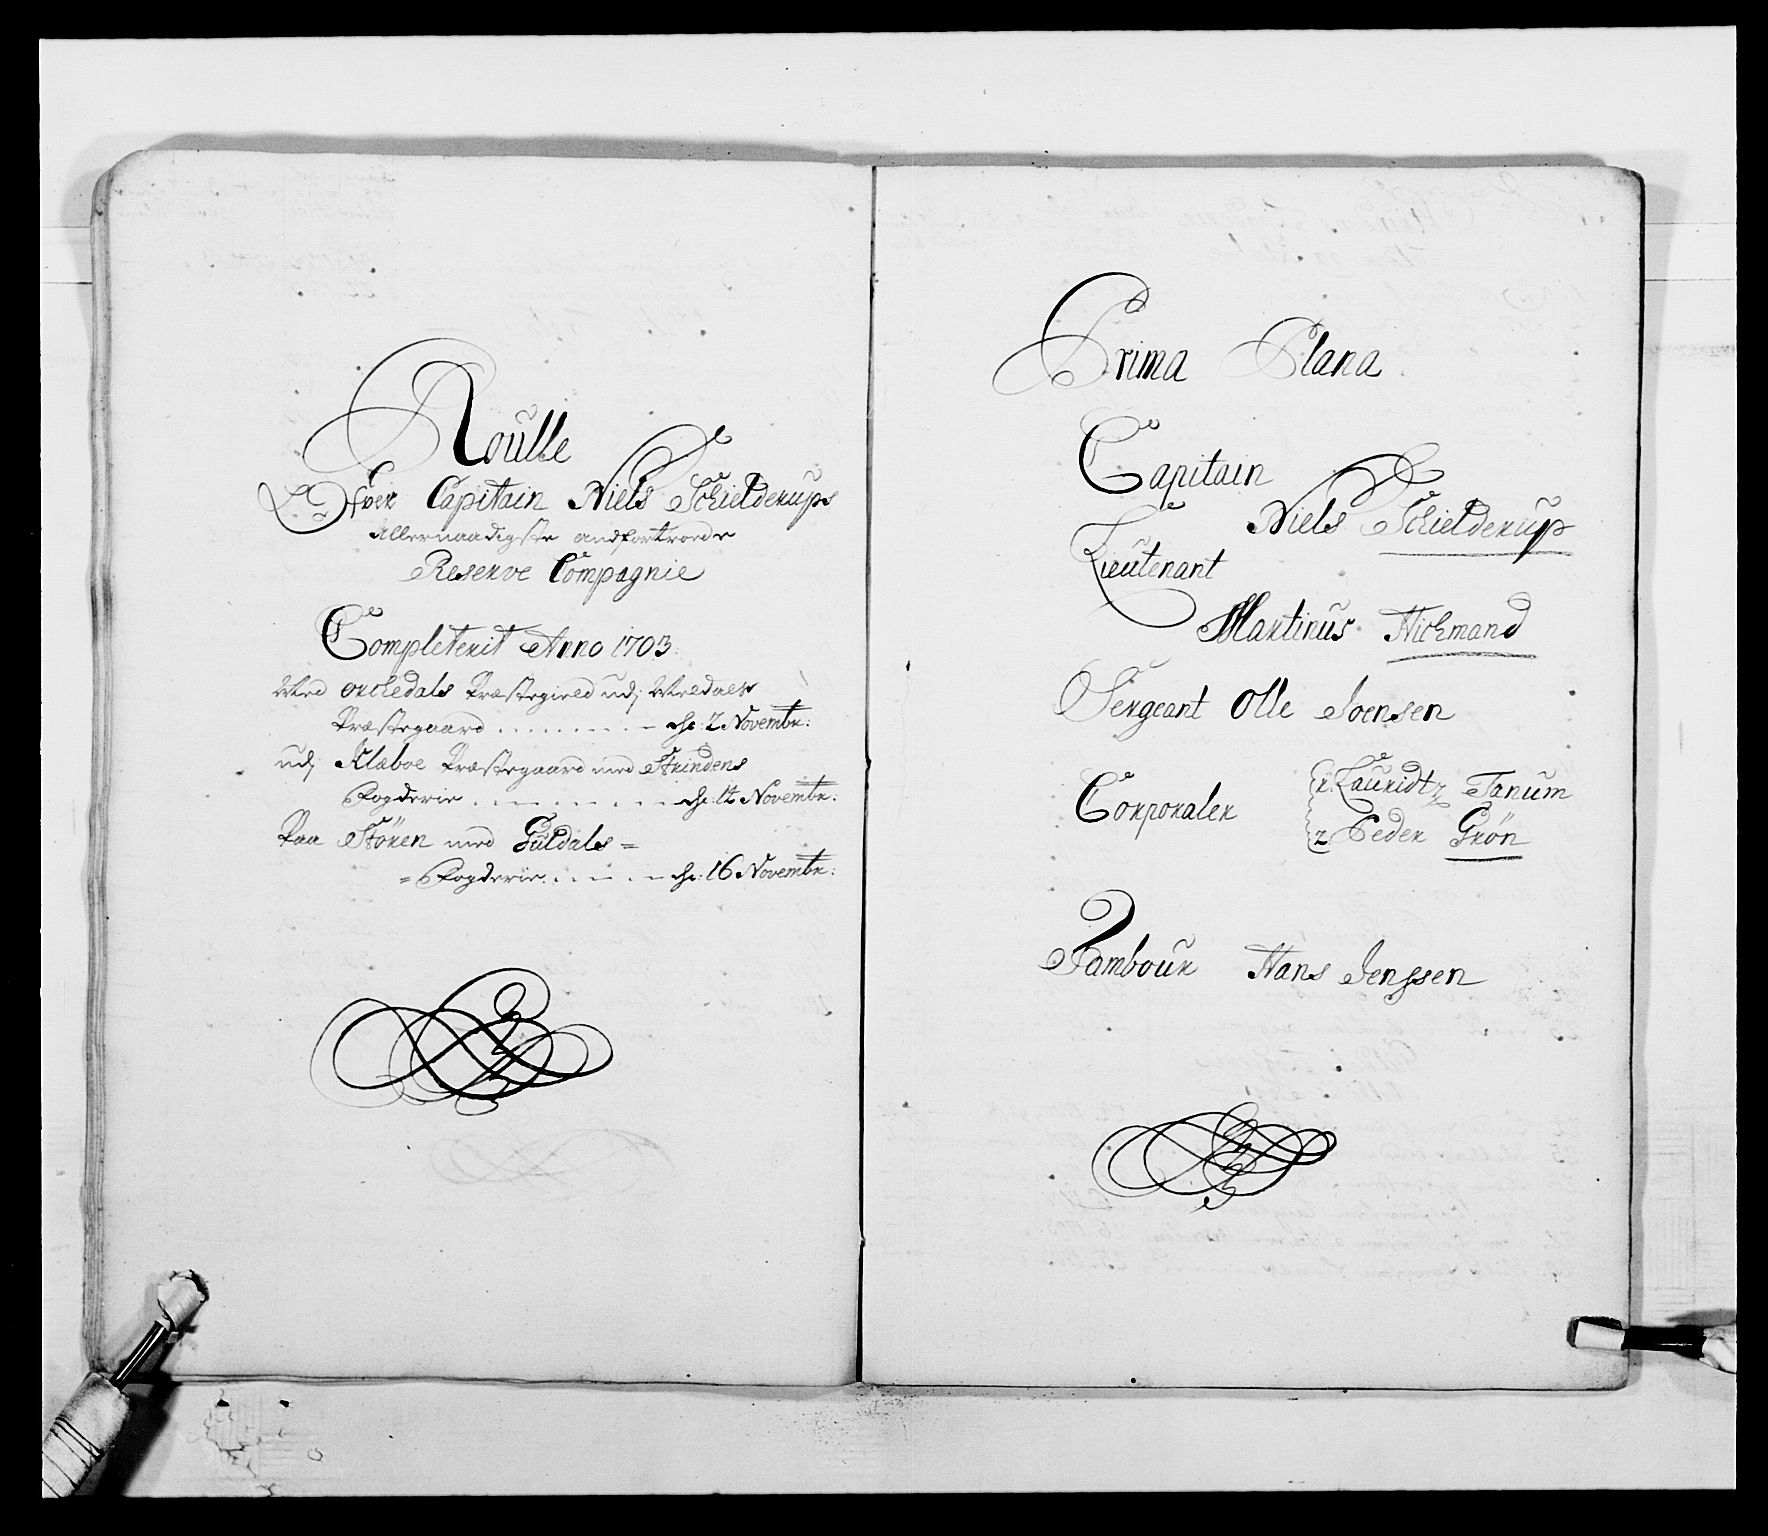 Roulle
Ofver Capitain Niels Schielderups
Allernaadigste andfortroede
Reserve Compagnie
Completerit Anno 1703.
Ved Orchedals Præstegield udj Meldals
Præstegaard . . . . . . . . d: 2 Novembr:
udj Klæboe Præstegaard med Strindens
Fogderie . . . . . . . . d: 14 Novembr:
Paa Stören med Guldals=
=Fogderie. . . . . . d: 16 Novembr:
Prima Plana
Capitain
Niels Schielderup
Lieutenant
Martinus Hichmand
Sergeant Olle Joensen
Corporaler
1. Lauridtz Tanum
2 Peder Grön
Tambour Hans Jenssen